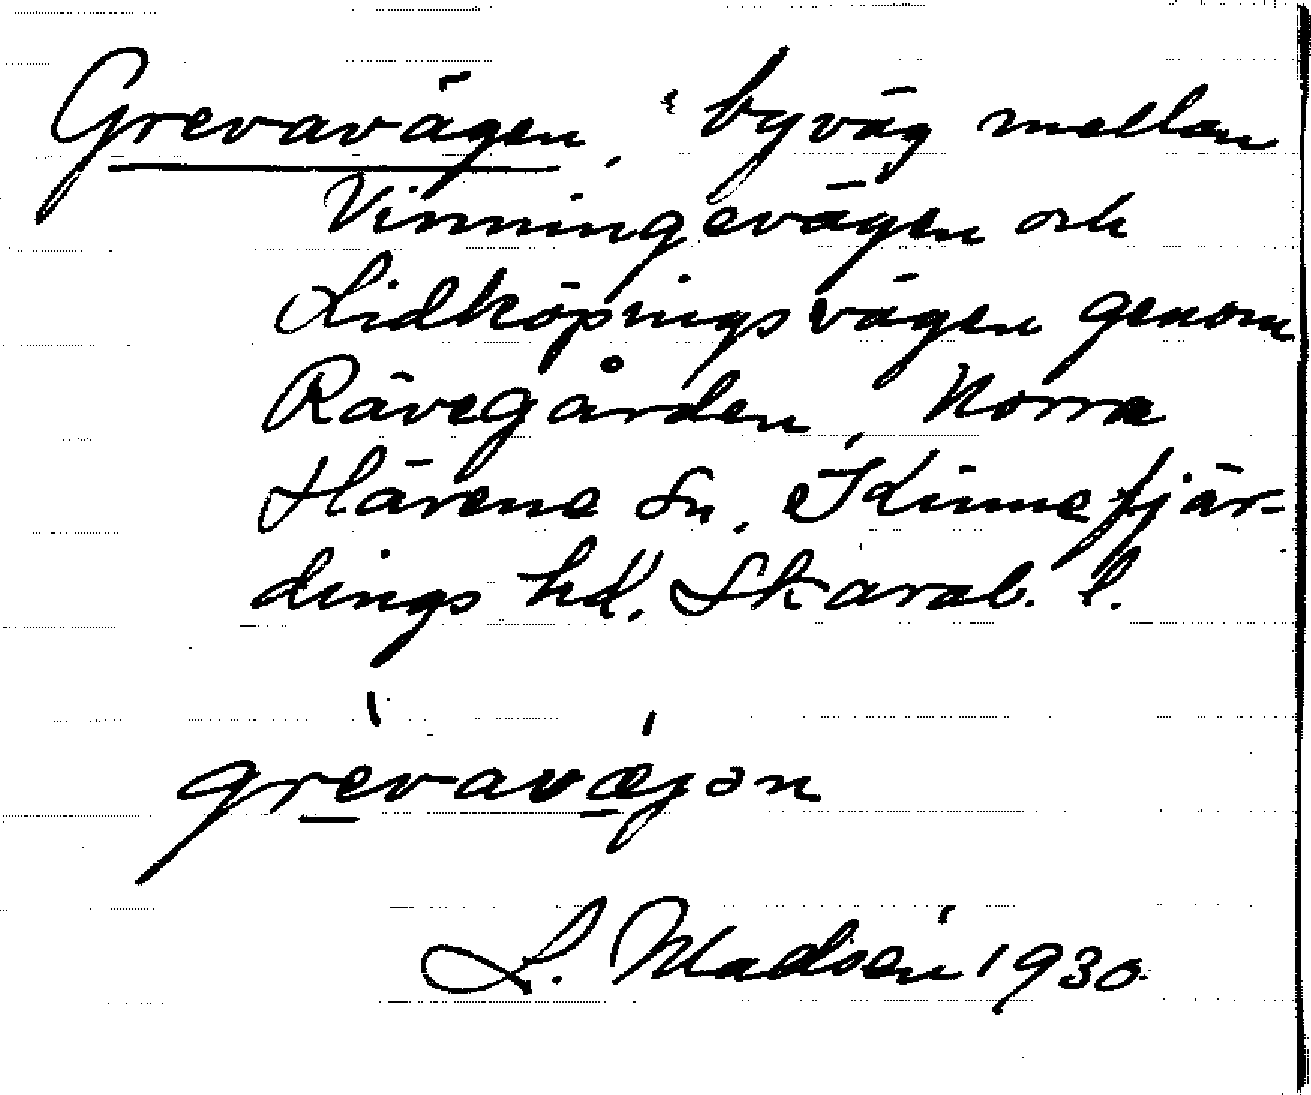 Grevavägen, byväg mellan
Vinningevägen och
Lidköpingsvägen genom
Rävegården, Norra
Härene sn. Kinnefjär-
dings hd. Skarab. l.
grèvavǽjən
L. Madsén 1930